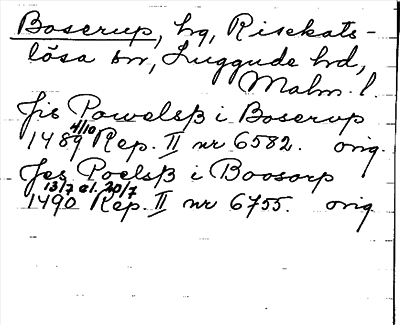 Boserup, hg, Risekats-
lösa sn, Luggude hd,
Malm. l.
Jis Powelsß i Boserup
1489 4/10 Rep. II nr 6582. orig.
Jes Poelsß i Boosorp
1490 13/7 el. 20/7 Rep. II nr 6755. orig